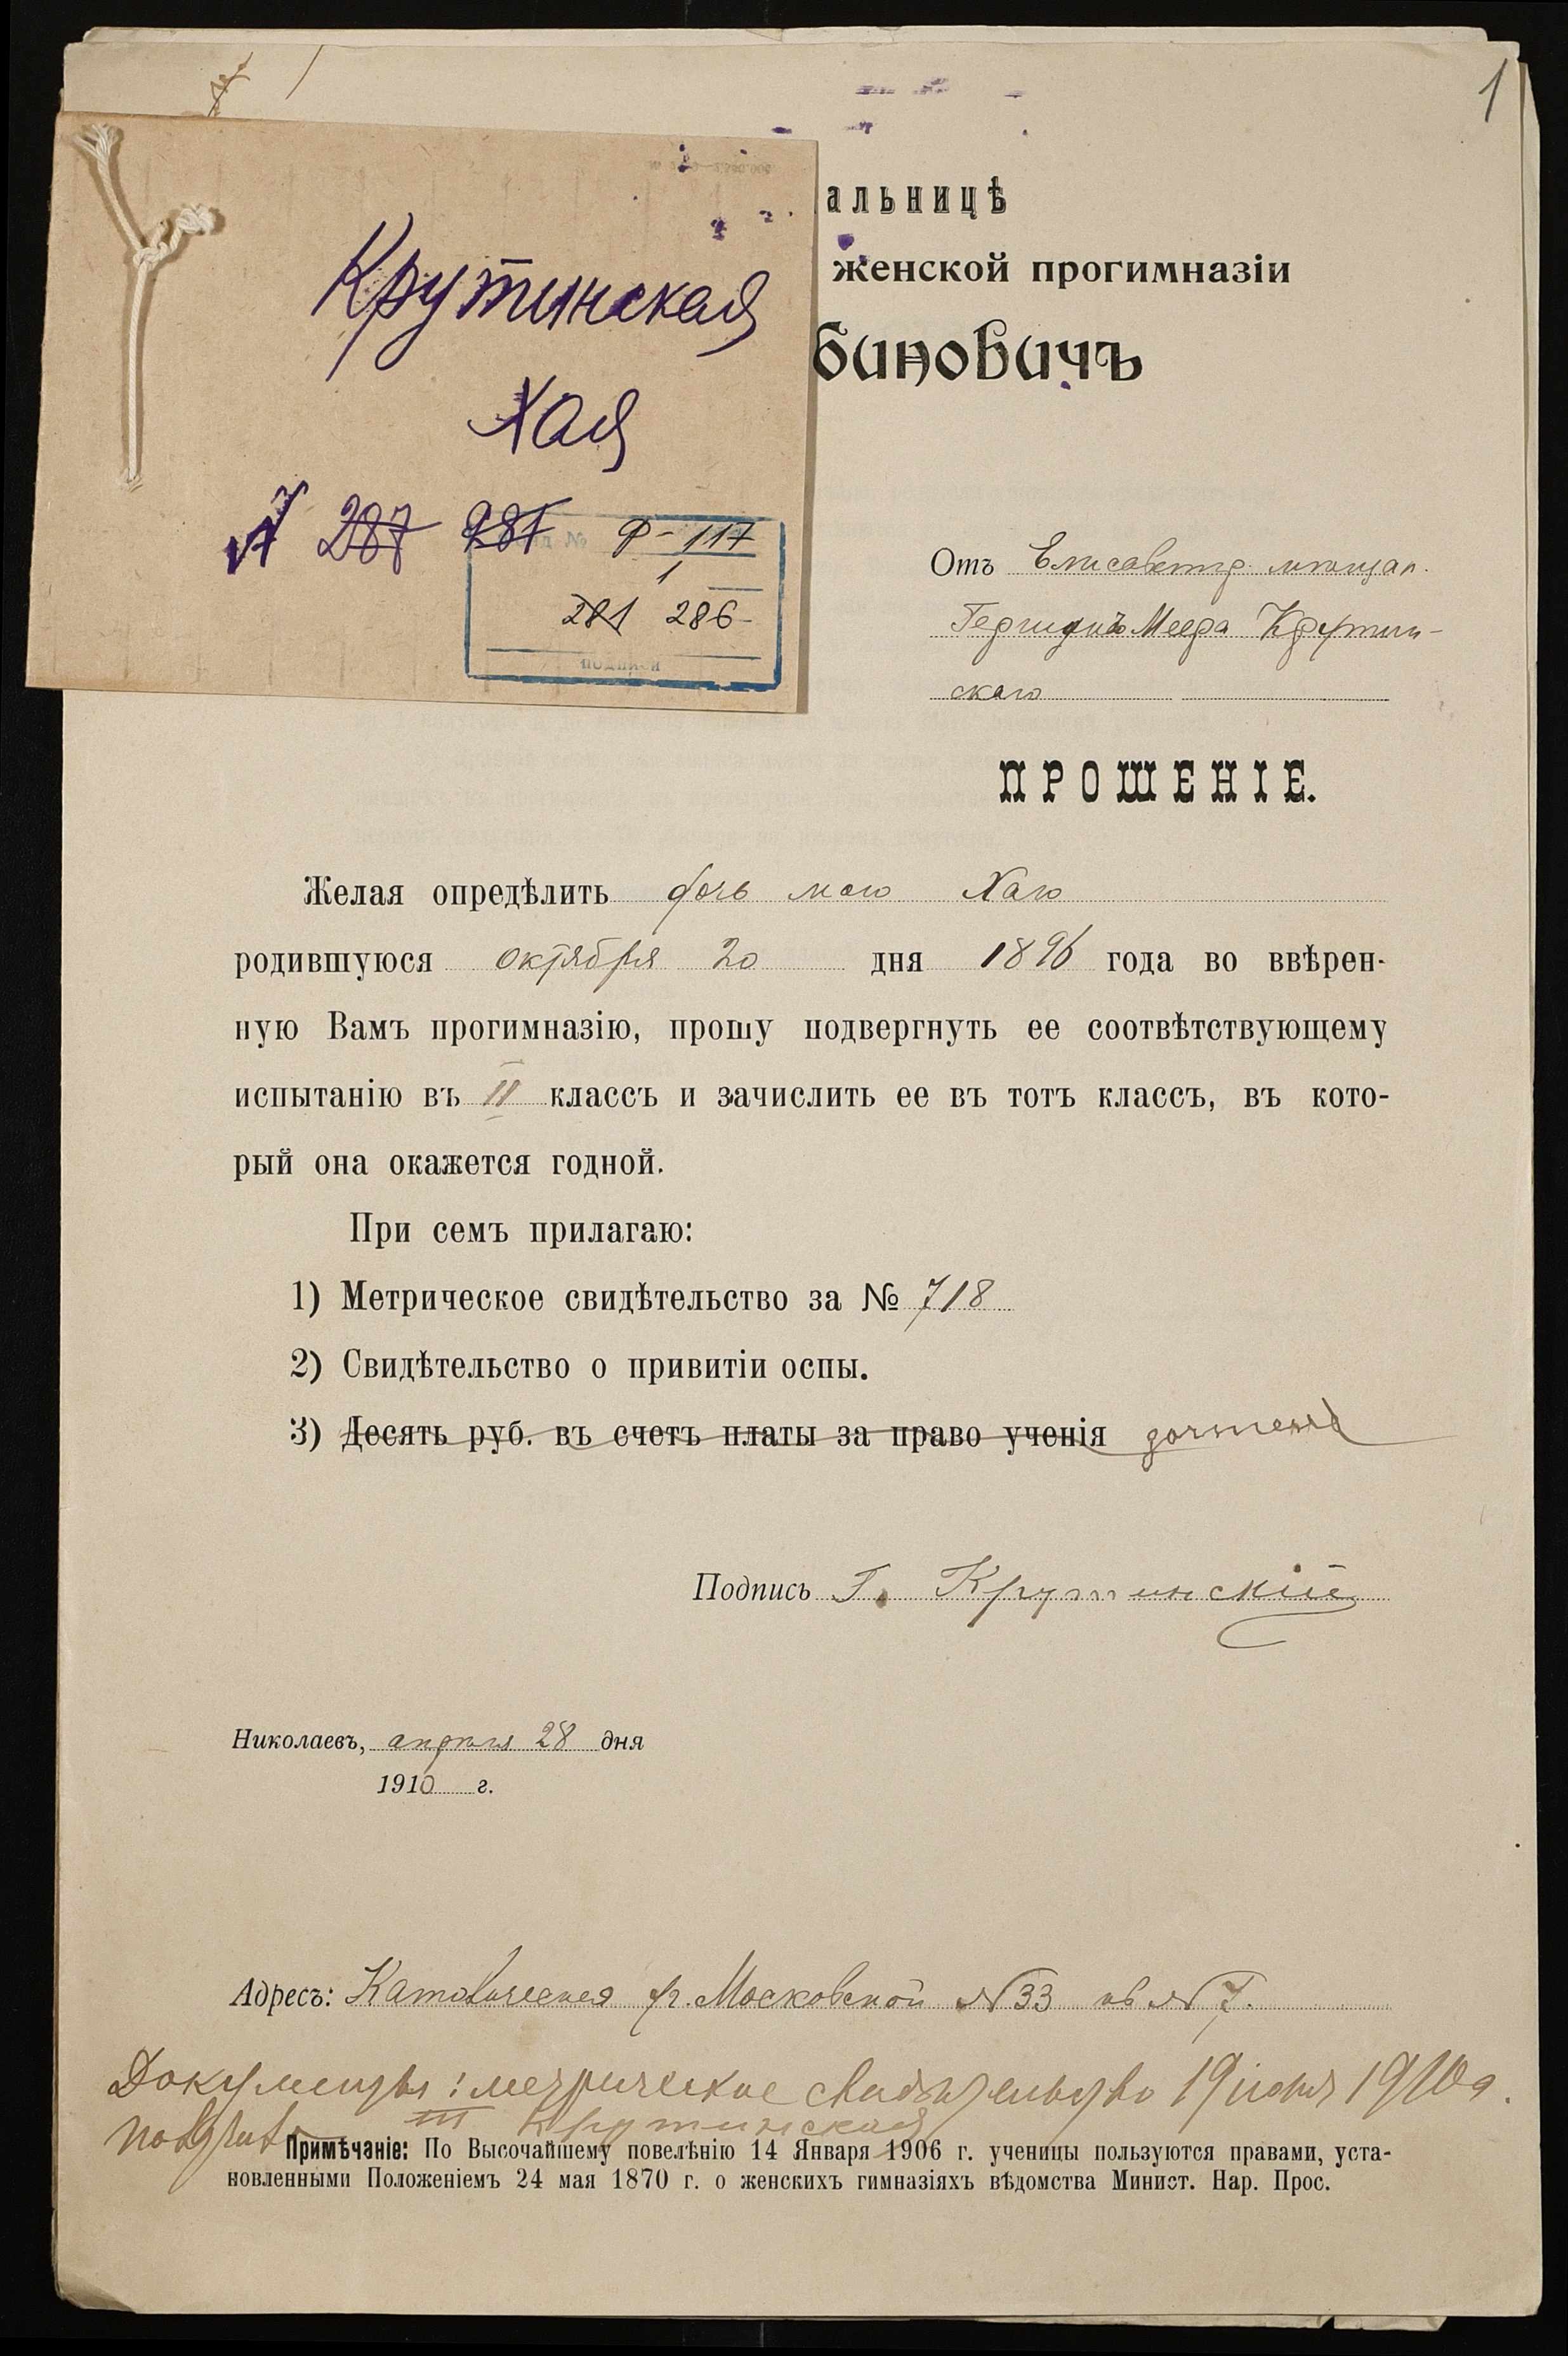 1
Крутинская
Хая
287 287
Ф-117
1
281 286
подписи
альницѣ
женской прогимназіи
биновичъ
Отъ Елисаветгр. мѣщан.
Меера Крутин-
скаго
ПРОШЕНІЕ.
Желая опредѣлить дочь мою Хаю
родившуюся октября 20 дня 1896 года во ввѣрен-
ную Вамъ прогимназію, прошу подвергнуть ее соотвѣтствующему
испытанію въ II классъ и зачислить ее въ тотъ классъ, въ кото-
рый она окажется годной.
При семъ прилагаю:
1) Метрическое свидѣтельство за № 718
2) Свидѣтельство о привитіи оспы.
3) Десять руб. въ счетъ платы за право ученія
Подпись Г. Крутинскій
Николаевъ, апрѣля 28 дня
1910 г.
Адресъ: Католическая Московской № 33 кв № 7.
Документы: метрическое свидѣтельство 19 1910 г.
III Крутинская
Примѣчаніе: По Высочайшему повелѣнію 14 Января 1906 г. ученицы пользуются правами, уста-
новленными Положеніемъ 24 мая 1870 г. о женскихъ гимназіяхъ вѣдомства Минист. Нар. Прос.